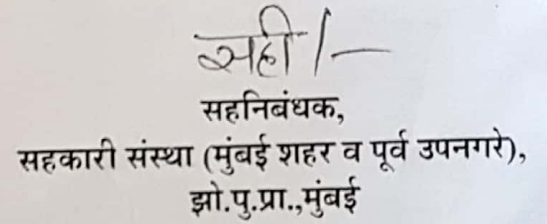 सही/-
सहनिबंधक,
सहकारी संस्था (मुंबई शहर व पूर्व उपनगरे),
झो.पु.प्रा.,मुंबई